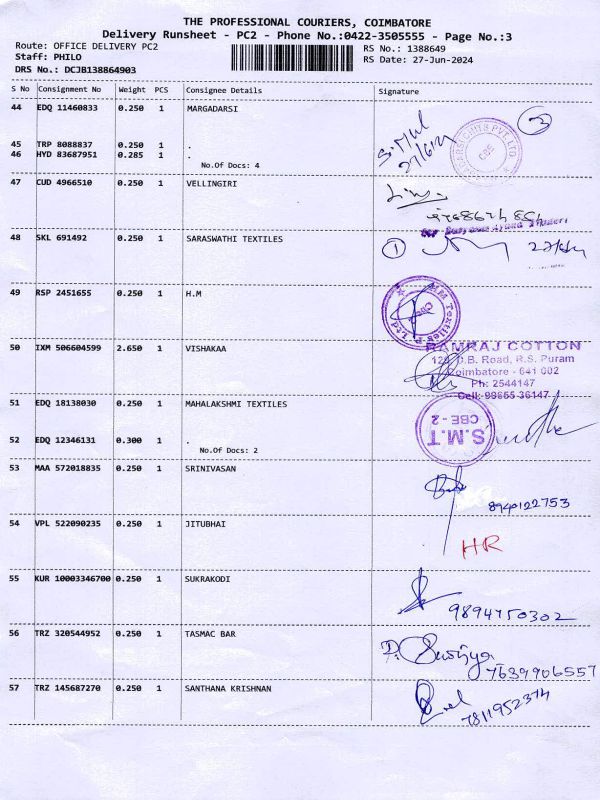 THE PROFESSIONAL COURIERS, COIMBATORE
Delivery Runsheet - PC2 - Phone No.:0422-3505555 - Page No.:3
Route: OFFICE DELIVERY PC2
RS No.: 1388649
Staff: PHILO
RS Date: 27-Jun-2024
DRS No.: DCJB138864903
S No Consignment No Weight PCS Consignee Details Signature
44 EDQ 11460833 0.250 1 MARGADARSI
3
45 TRP 8088837 0.250 1 .
46 HYD 83687951 0.285 1 .
No.Of Docs: 4
CBE
47 CUD 4966510 0.250 1 VELLINGIRI
48 SKL 691492 0.250 1 SARASWATHI TEXTILES
1
49 RSP 2451655 0.250 1 H.M
50 IXM 506604599 2.650 1 VISHAKAA
RAMRAJ COTTON
D.B. Road, R.S. Puram
Coimbatore - 641 002
Ph: 2544147
Cell: 99655 36147
51 EDQ 18138030 0.250 1 MAHALAKSHMI TEXTILES
S.M.T
CBE-2
52 EDQ 12346131 0.300 1 .
No.Of Docs: 2
53 MAA 572018835 0.250 1 SRINIVASAN
8940122753
54 VPL 522090235 0.250 1 JITUBHAI
HR
55 KUR 10003346700 0.250 1 SUKRAKODI
9894750302
56 TRZ 320544952 0.250 1 TASMAC BAR
P. Suriya
7639906557
57 TRZ 145687270 0.250 1 SANTHANA KRISHNAN
7811952374